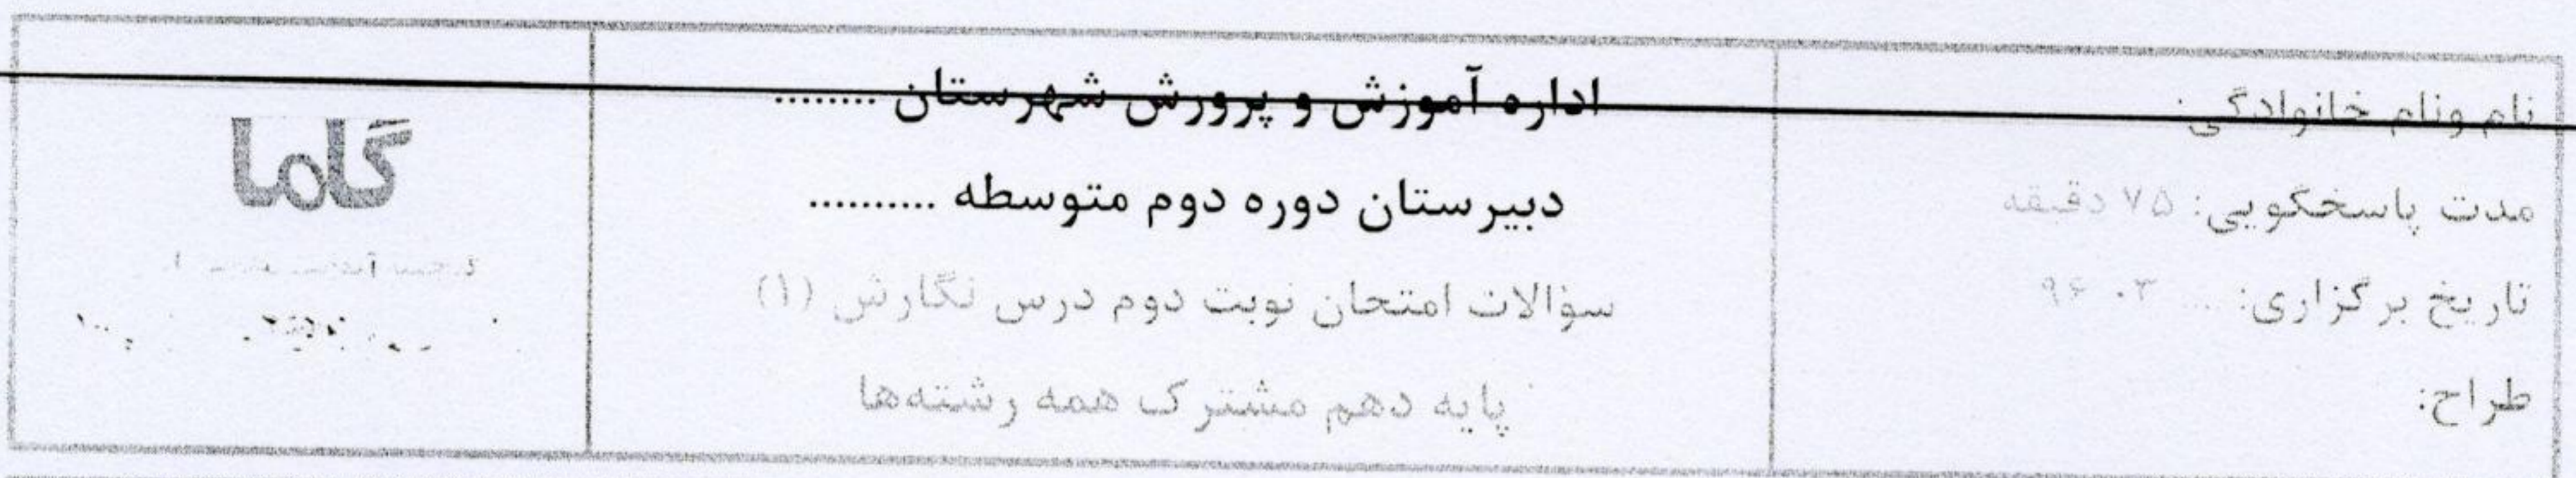 نام ونام خانوادگی:
مدت پاسخگویی: ۷۵ دقیقه
تاریخ برگزاری: ... ۰۳ ۹۶
طراح:
اداره آموزش و پرورش شهرستان ........
دبیرستان دوره دوم متوسطه ..........
سؤالات امتحان نوبت دوم درس نگارش (۱)
پایه دهم مشترک همه رشته‌ها
گاما